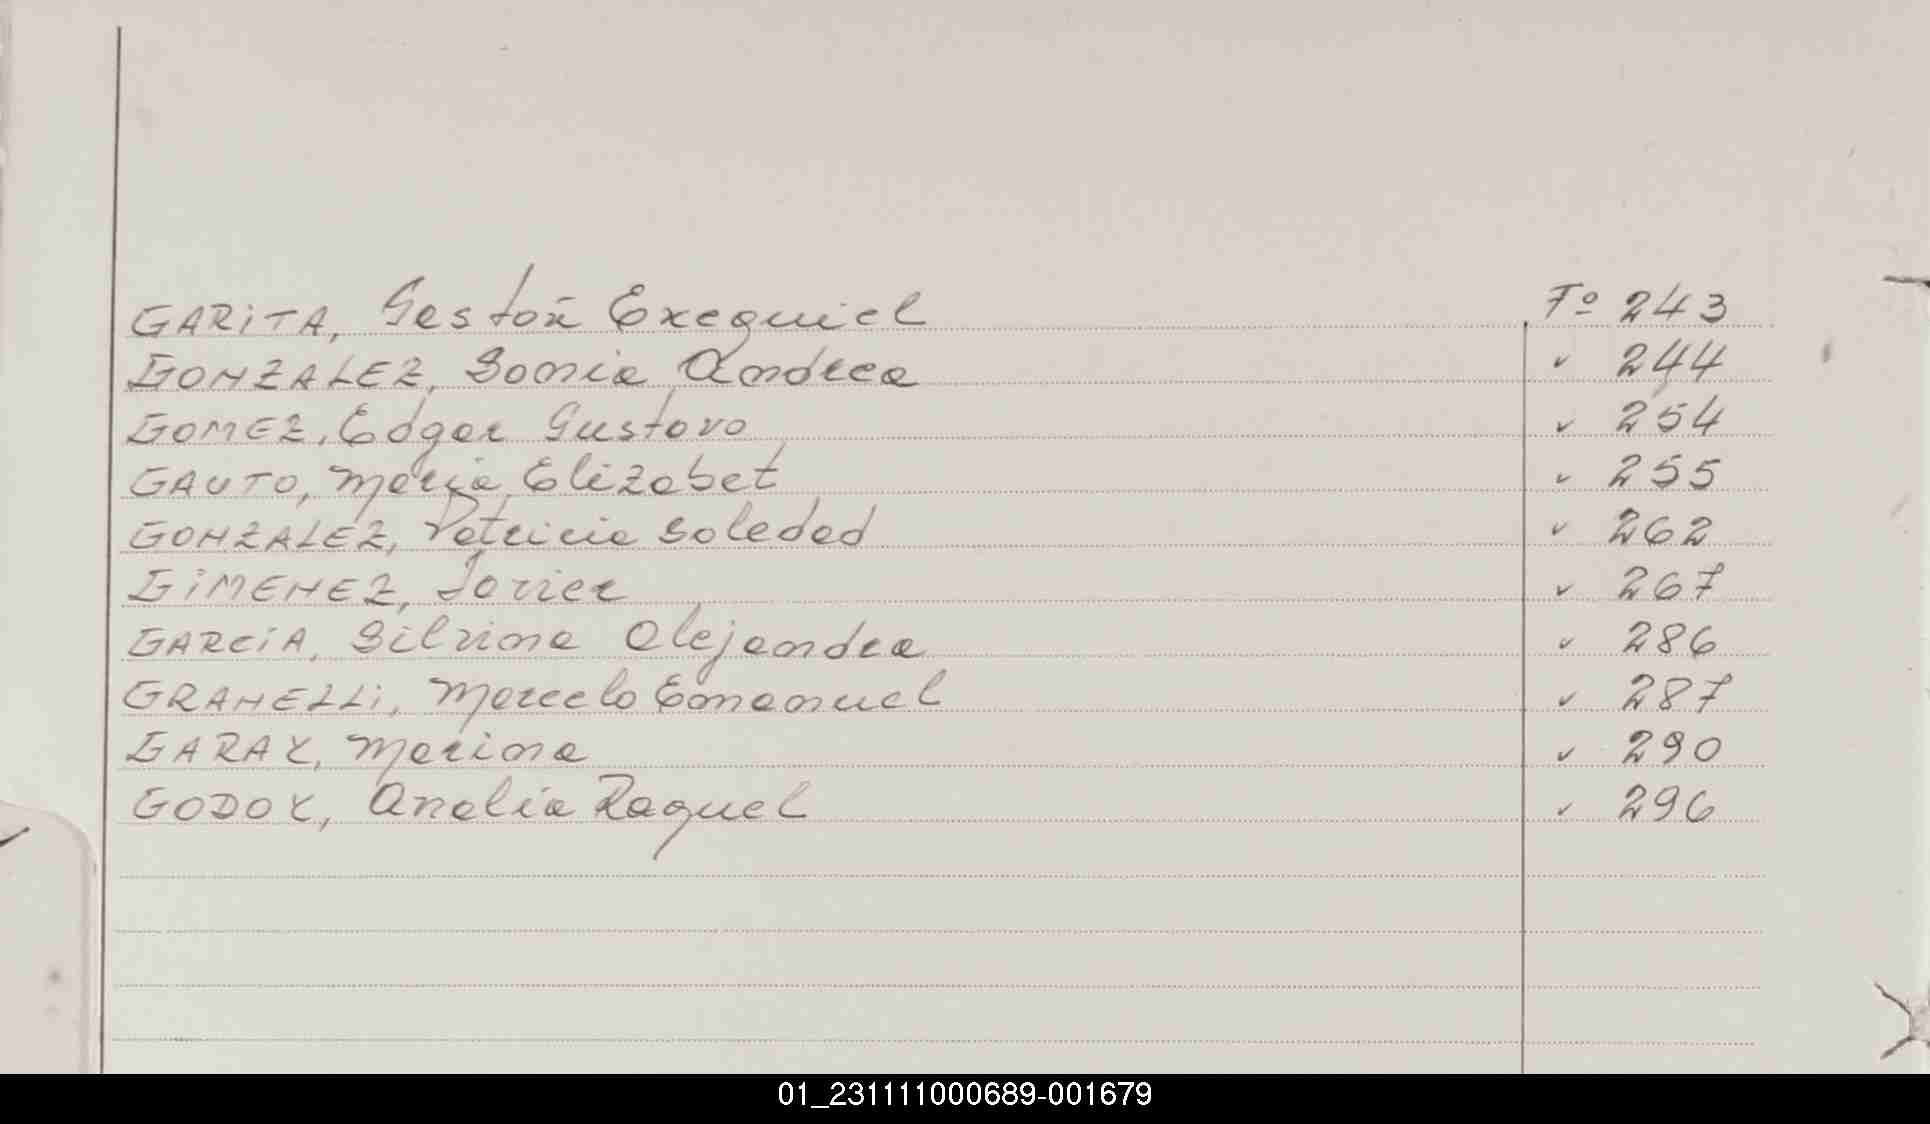 GARITA, Gastón Exequiel Fº 243
GONZALEZ, Sonia Andrea " 244
GOMEZ, Edgar Gustavo " 254
GAUTO, Maria Elizabet " 255
GONZALEZ, Patricia Soledad " 262
GIMENEZ, Javier " 267
GARCIA, Silvina Alejandra " 286
GRANELLI, Marcelo Emanuel " 287
GARAY, Marina " 290
GODOY, Analia Raquel " 296
01_231111000689-001679